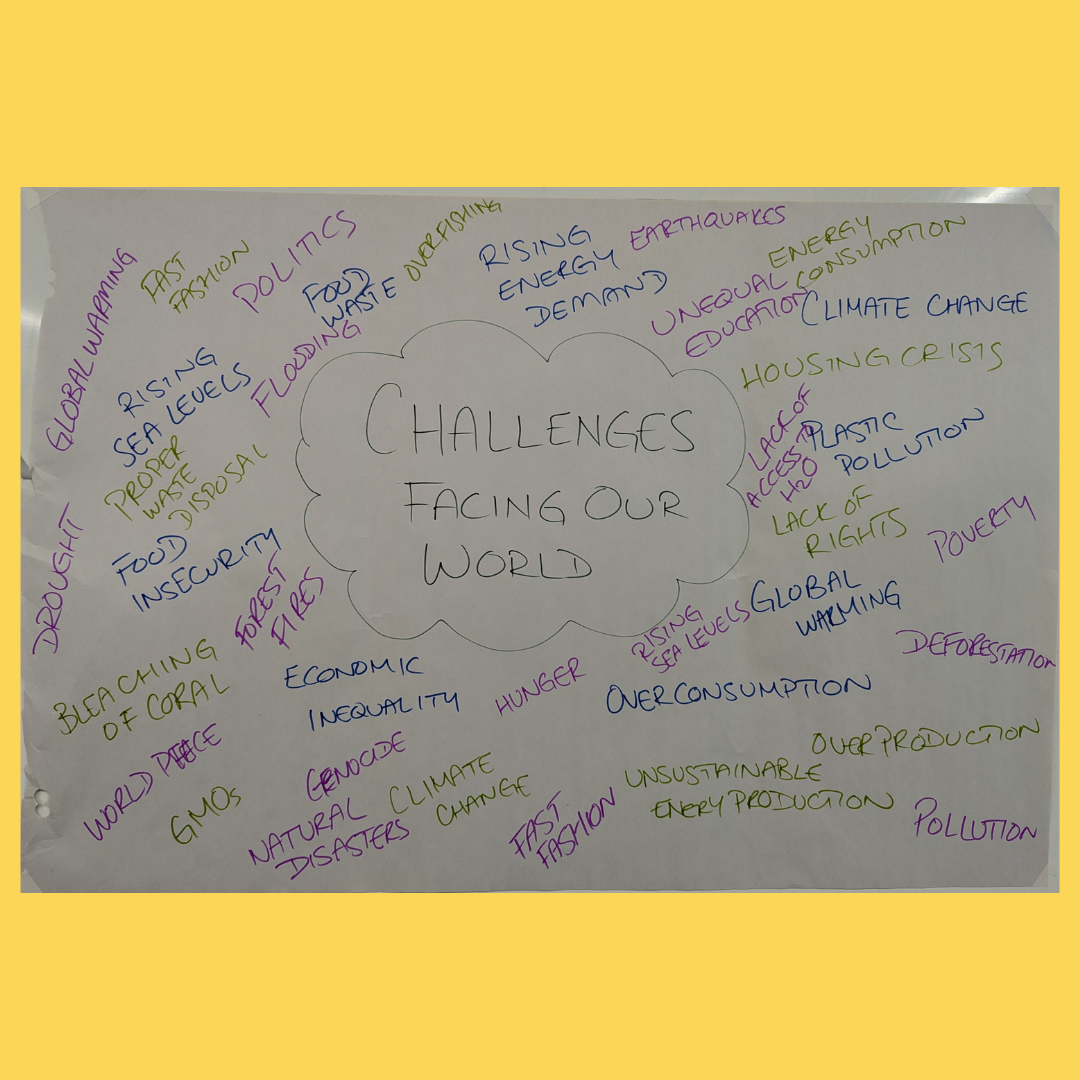 GLOBAL WARMING
FAST
FASHION
POLITICS
FOOD
WASTE
OVERFISHING
RISING
ENERGY
DEMAND
EARTHQUAKES
ENERGY
CONSUMPTION
UNEQUAL
EDUCATION
CLIMATE CHANGE
FLOODING
RISING
SEA LEVELS
HOUSING CRISIS
CHALLENGES
FACING OUR
WORLD
LACK OF
ACCESS TO
H2O
PLASTIC
POLLUTION
PROPER
WASTE
DISPOSAL
LACK OF
RIGHTS
POVERTY
DROUGHT
FOOD
INSECURITY
FOREST
FIRES
GLOBAL
WARMING
RISING
SEA LEVELS
DEFORESTATION
BLEACHING
OF CORAL
ECONOMIC
INEQUALITY
HUNGER
OVERCONSUMPTION
WORLD PEACE
GMOs
GENOCIDE
NATURAL
DISASTERS
CLIMATE
CHANGE
FAST
FASHION
OVERPRODUCTION
UNSUSTAINABLE
ENERY PRODUCTION
POLLUTION